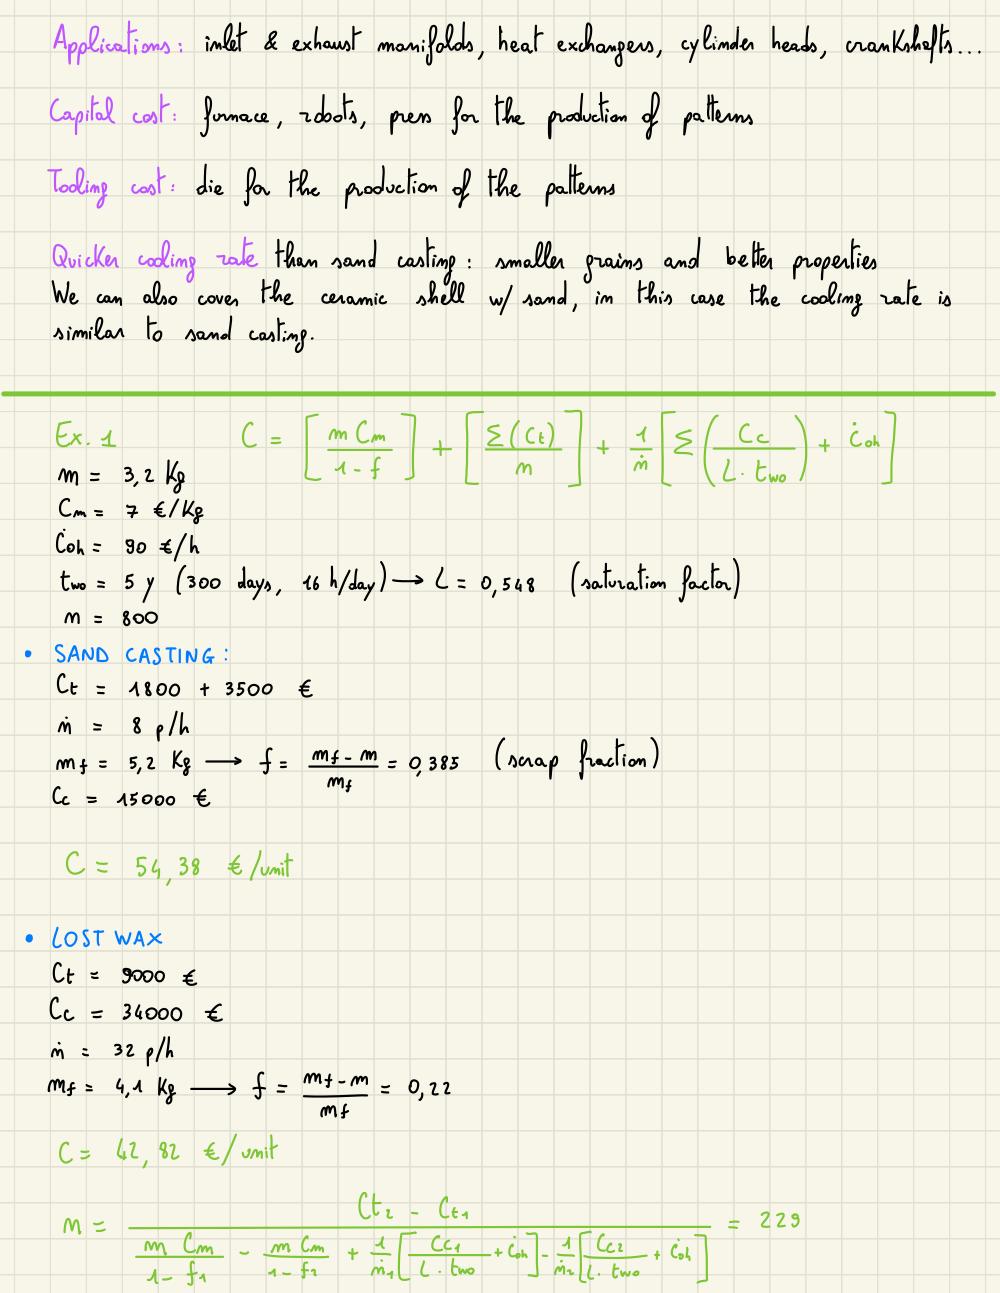 Applications: inlet & exhaust manifolds, heat exchangers, cylinder heads, crankshafts...
Capital cost: furnace, robots, press for the production of patterns
Tooling cost: die for the production of the patterns
Quicker cooling rate than sand casting: smaller grains and better properties
We can also cover the ceramic shell w/ sand, in this case the cooling rate is
similar to sand casting.
Ex. 1 C = [m Cm / 1-f] + [Σ(Ct) / n] + 1/ṅ [Σ(Cc / L · two) + Ċoh]
m = 3,2 Kg
Cm = 7 €/Kg
Ċoh = 90 €/h
two = 5 y (300 days, 16 h/day) → L = 0,548 (saturation factor)
n = 800
• SAND CASTING:
Ct = 1800 + 3500 €
ṅ = 8 p/h
mf = 5,2 Kg → f = mf - m / mf = 0,385 (scrap fraction)
Cc = 15000 €
C = 54,38 €/unit
• LOST WAX
Ct = 9000 €
Cc = 34000 €
ṅ = 32 p/h
mf = 4,1 Kg → f = mf - m / mf = 0,22
C = 42,82 €/unit
n = Ct2 - Ct1 / m Cm / 1-f1 - m Cm / 1-f2 + 1/ṅ1 [Cc1 / L · two + Ċoh] - 1/ṅ2 [Cc2 / L · two + Ċoh] = 229